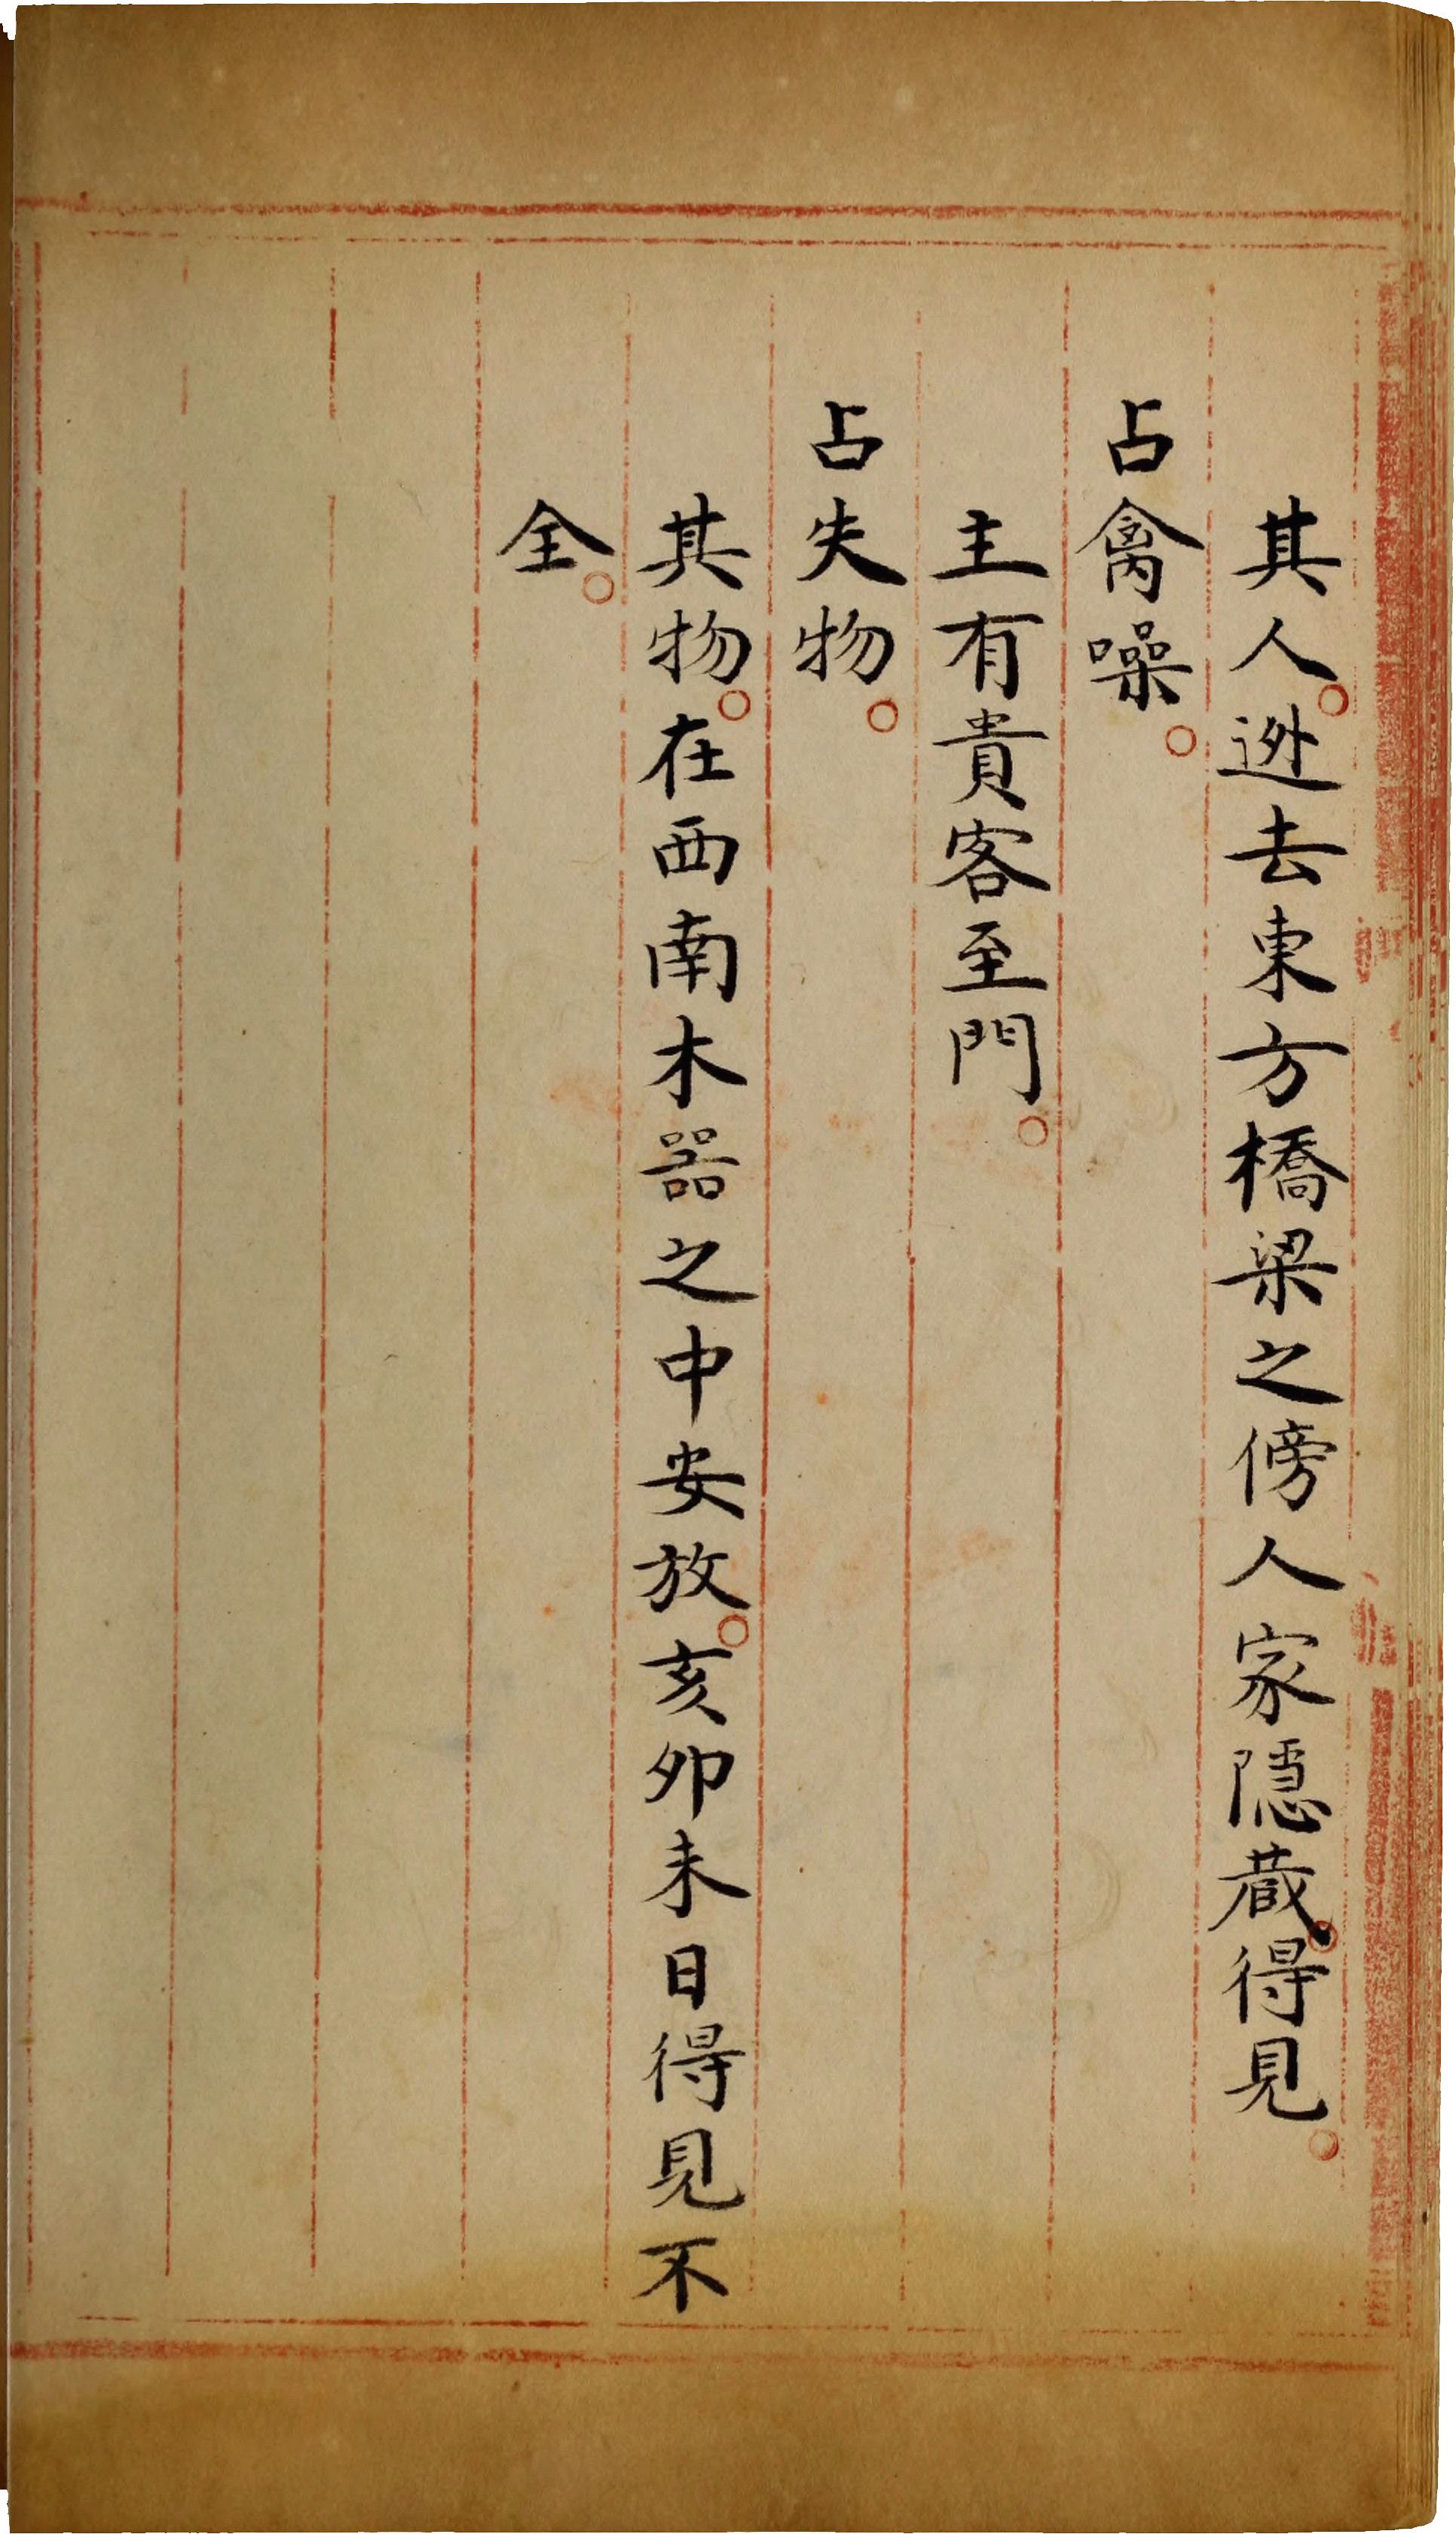 其人。迯去東方橋梁之傍人家隱蔵。得見。
占禽噪。
主有貴客至門。
占失物。
其物。在西南木器之中安放。亥夘未日得見不
全。